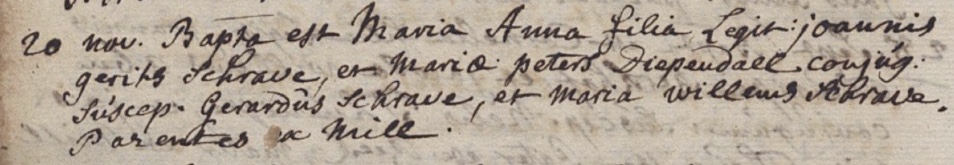 20 nov. Bapta est Maria Anna filia Legit: joannis
gerits Schrave, et Mariæ peters Diependael conjúg:
Súscep. Gerardús Schrave, et Maria willems Schrave.
Parentes ex Mill.